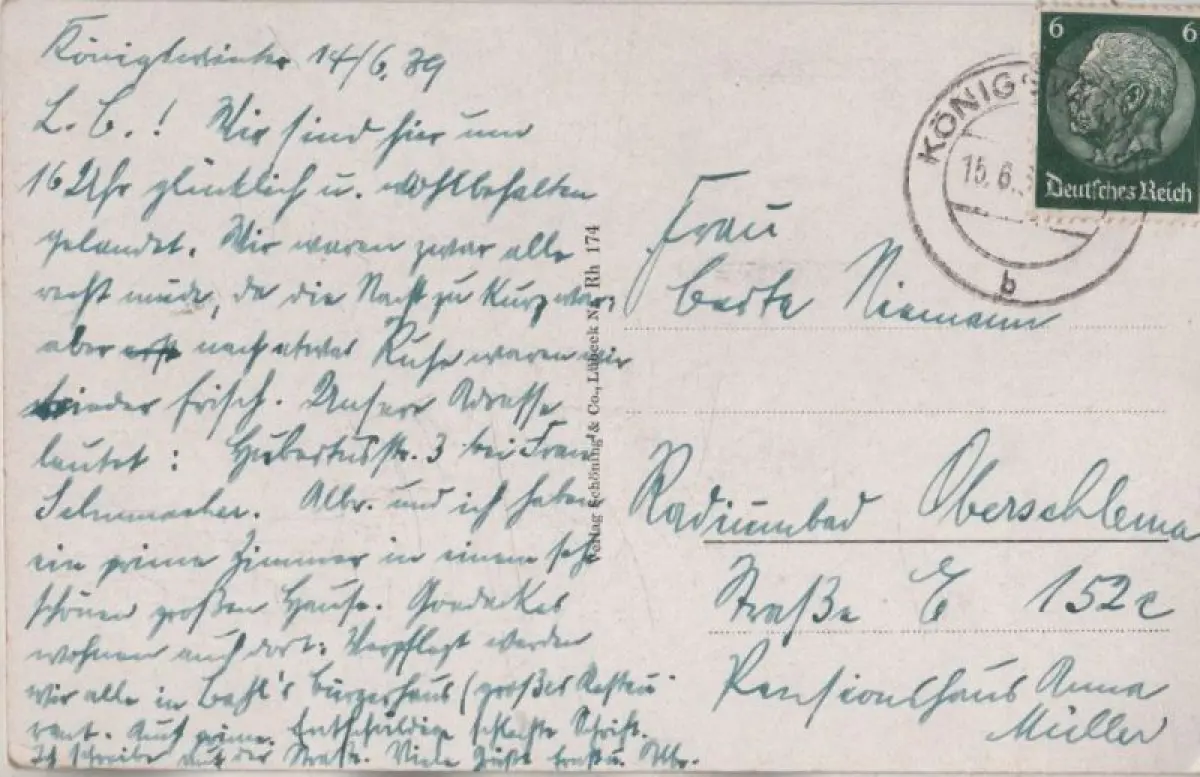 Königswinter 14/6. 39
L. B.! Wir sind hier um
16 Uhr glücklich u. wohlbehalten
gelandet. Wir waren zwar alle
recht müde, da die Nacht zu kurz war,
aber nach etwas Ruhe waren wir
wieder frisch. Unsere Adresse
lautet: Hubertusstr. 3 bei Frau
Schumacher. Albr. und ich haben
ein prima Zimmer in einem sehr
schönen großen Hause.
wohnen auch dort. Verpflegt werden
wir alle in Bürgerhaus (großes Restau-
rant. Auch prima. Entschuldige schlechte Schrift.
Ich schreibe auf der Straße. Viele Grüße Albr.
Verlag Schöning & Co., Lübeck Nr. Rh 174
KÖNIGSW
15.6.
b
6 6
Deutsches Reich
Frau
Berta Niemann
Radiumbad Oberschlema
Straße E 152c
Pensionshaus Anna
Müller